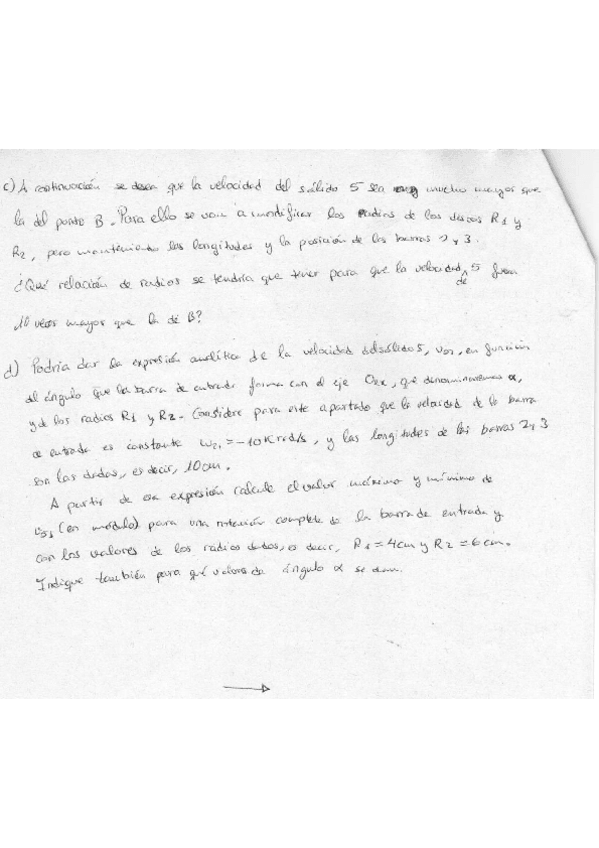 c) A continuación se desea que la velocidad del sólido 5 sea mucho mayor que
la del punto B. Para ello se van a modificar los radios de los discos R1 y
R2, pero manteniendo las longitudes y la posición de las barras 2 y 3.
¿Qué relación de radios se tendría que tener para que la velocidad de 5 fuera
10 veces mayor que la de B?
d) Podria dar la expresión analítica de la velocidad del sólido 5, V51, en función
del ángulo que la barra de entrada forma con el eje O2x, que denominaremos α,
y de los radios R1 y R2. Considere para este apartado que la velocidad de la barra
de entrada es constante ω21 = -10K rad/s, y las longitudes de las barras 2 y 3
son las dadas, es decir, 10cm.
A partir de esa expresión calcule el valor máximo y mínimo de
V51 (en módulo) para una rotación completa de la barra de entrada y
con los valores de los radios dados, es decir, R1 = 4cm y R2 = 6cm.
Indique también para qué valores de ángulo α se dan.